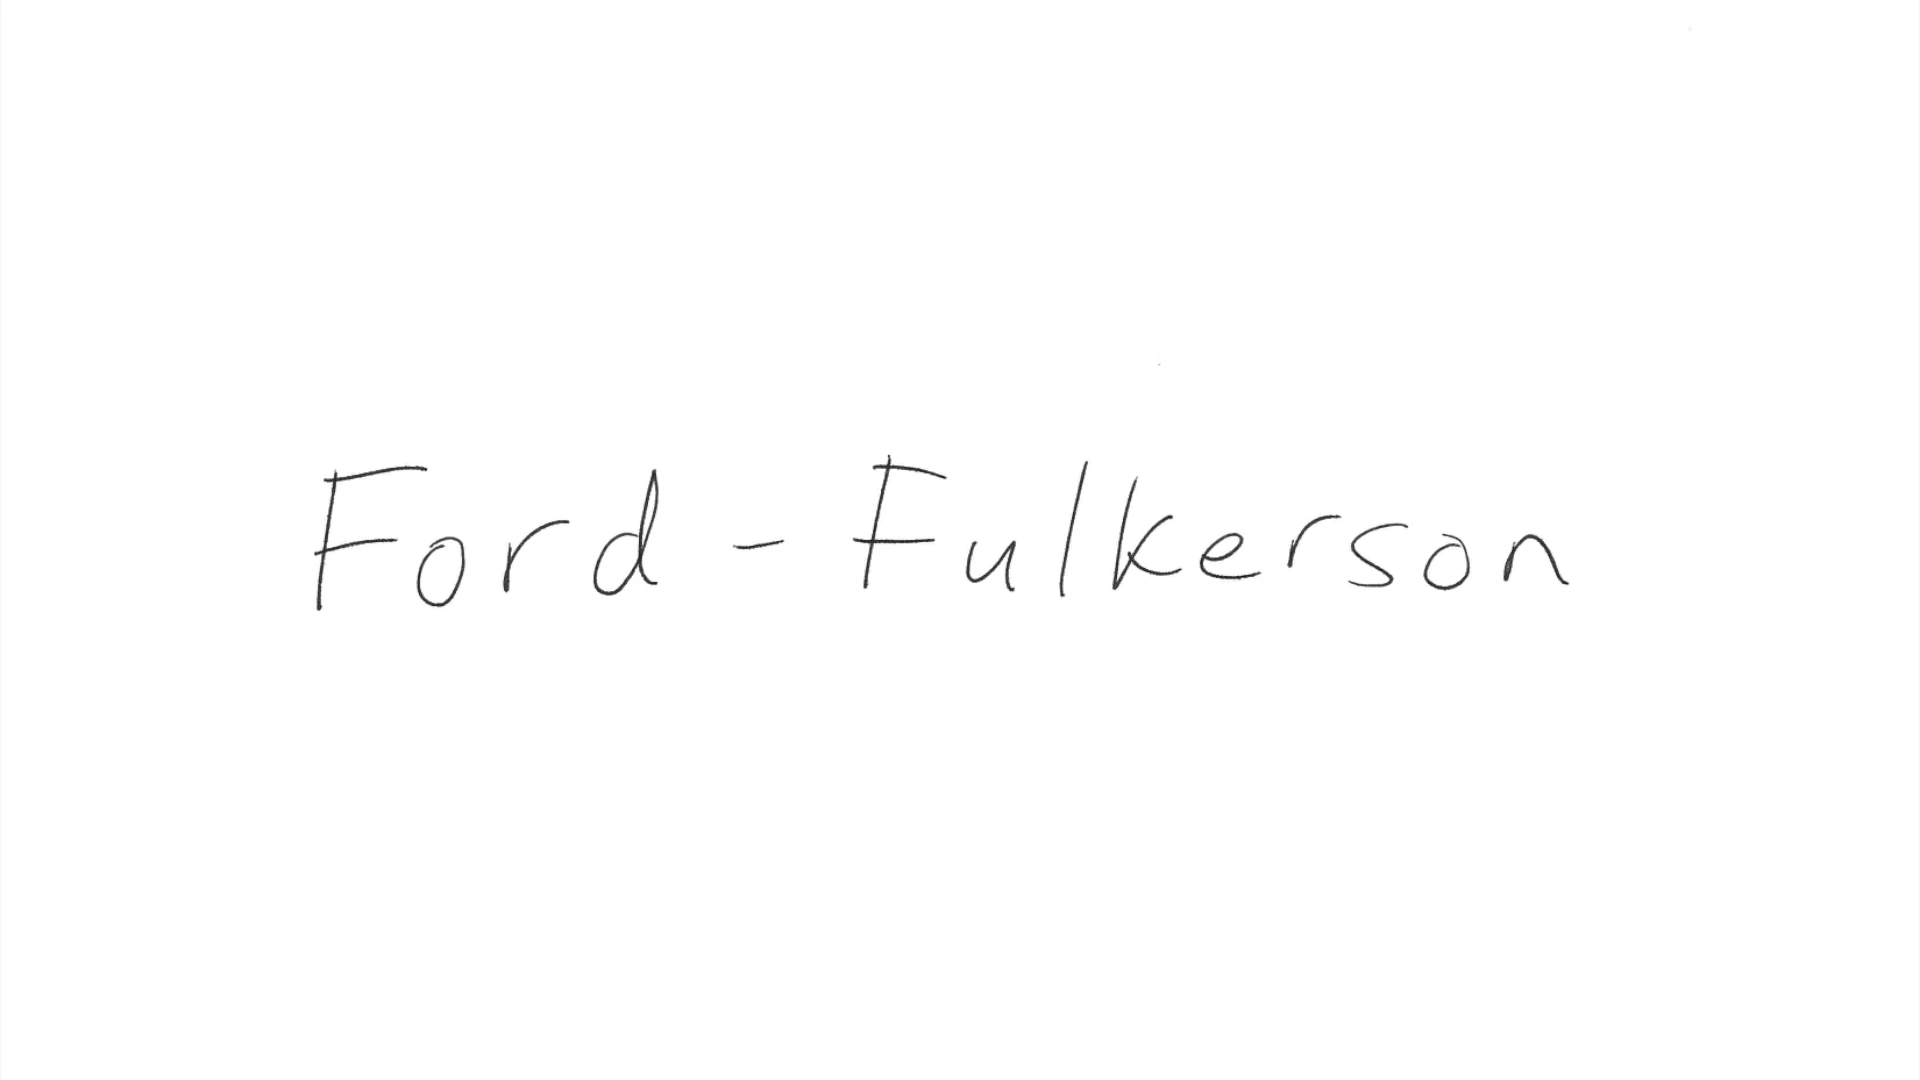 Ford - Fulkerson